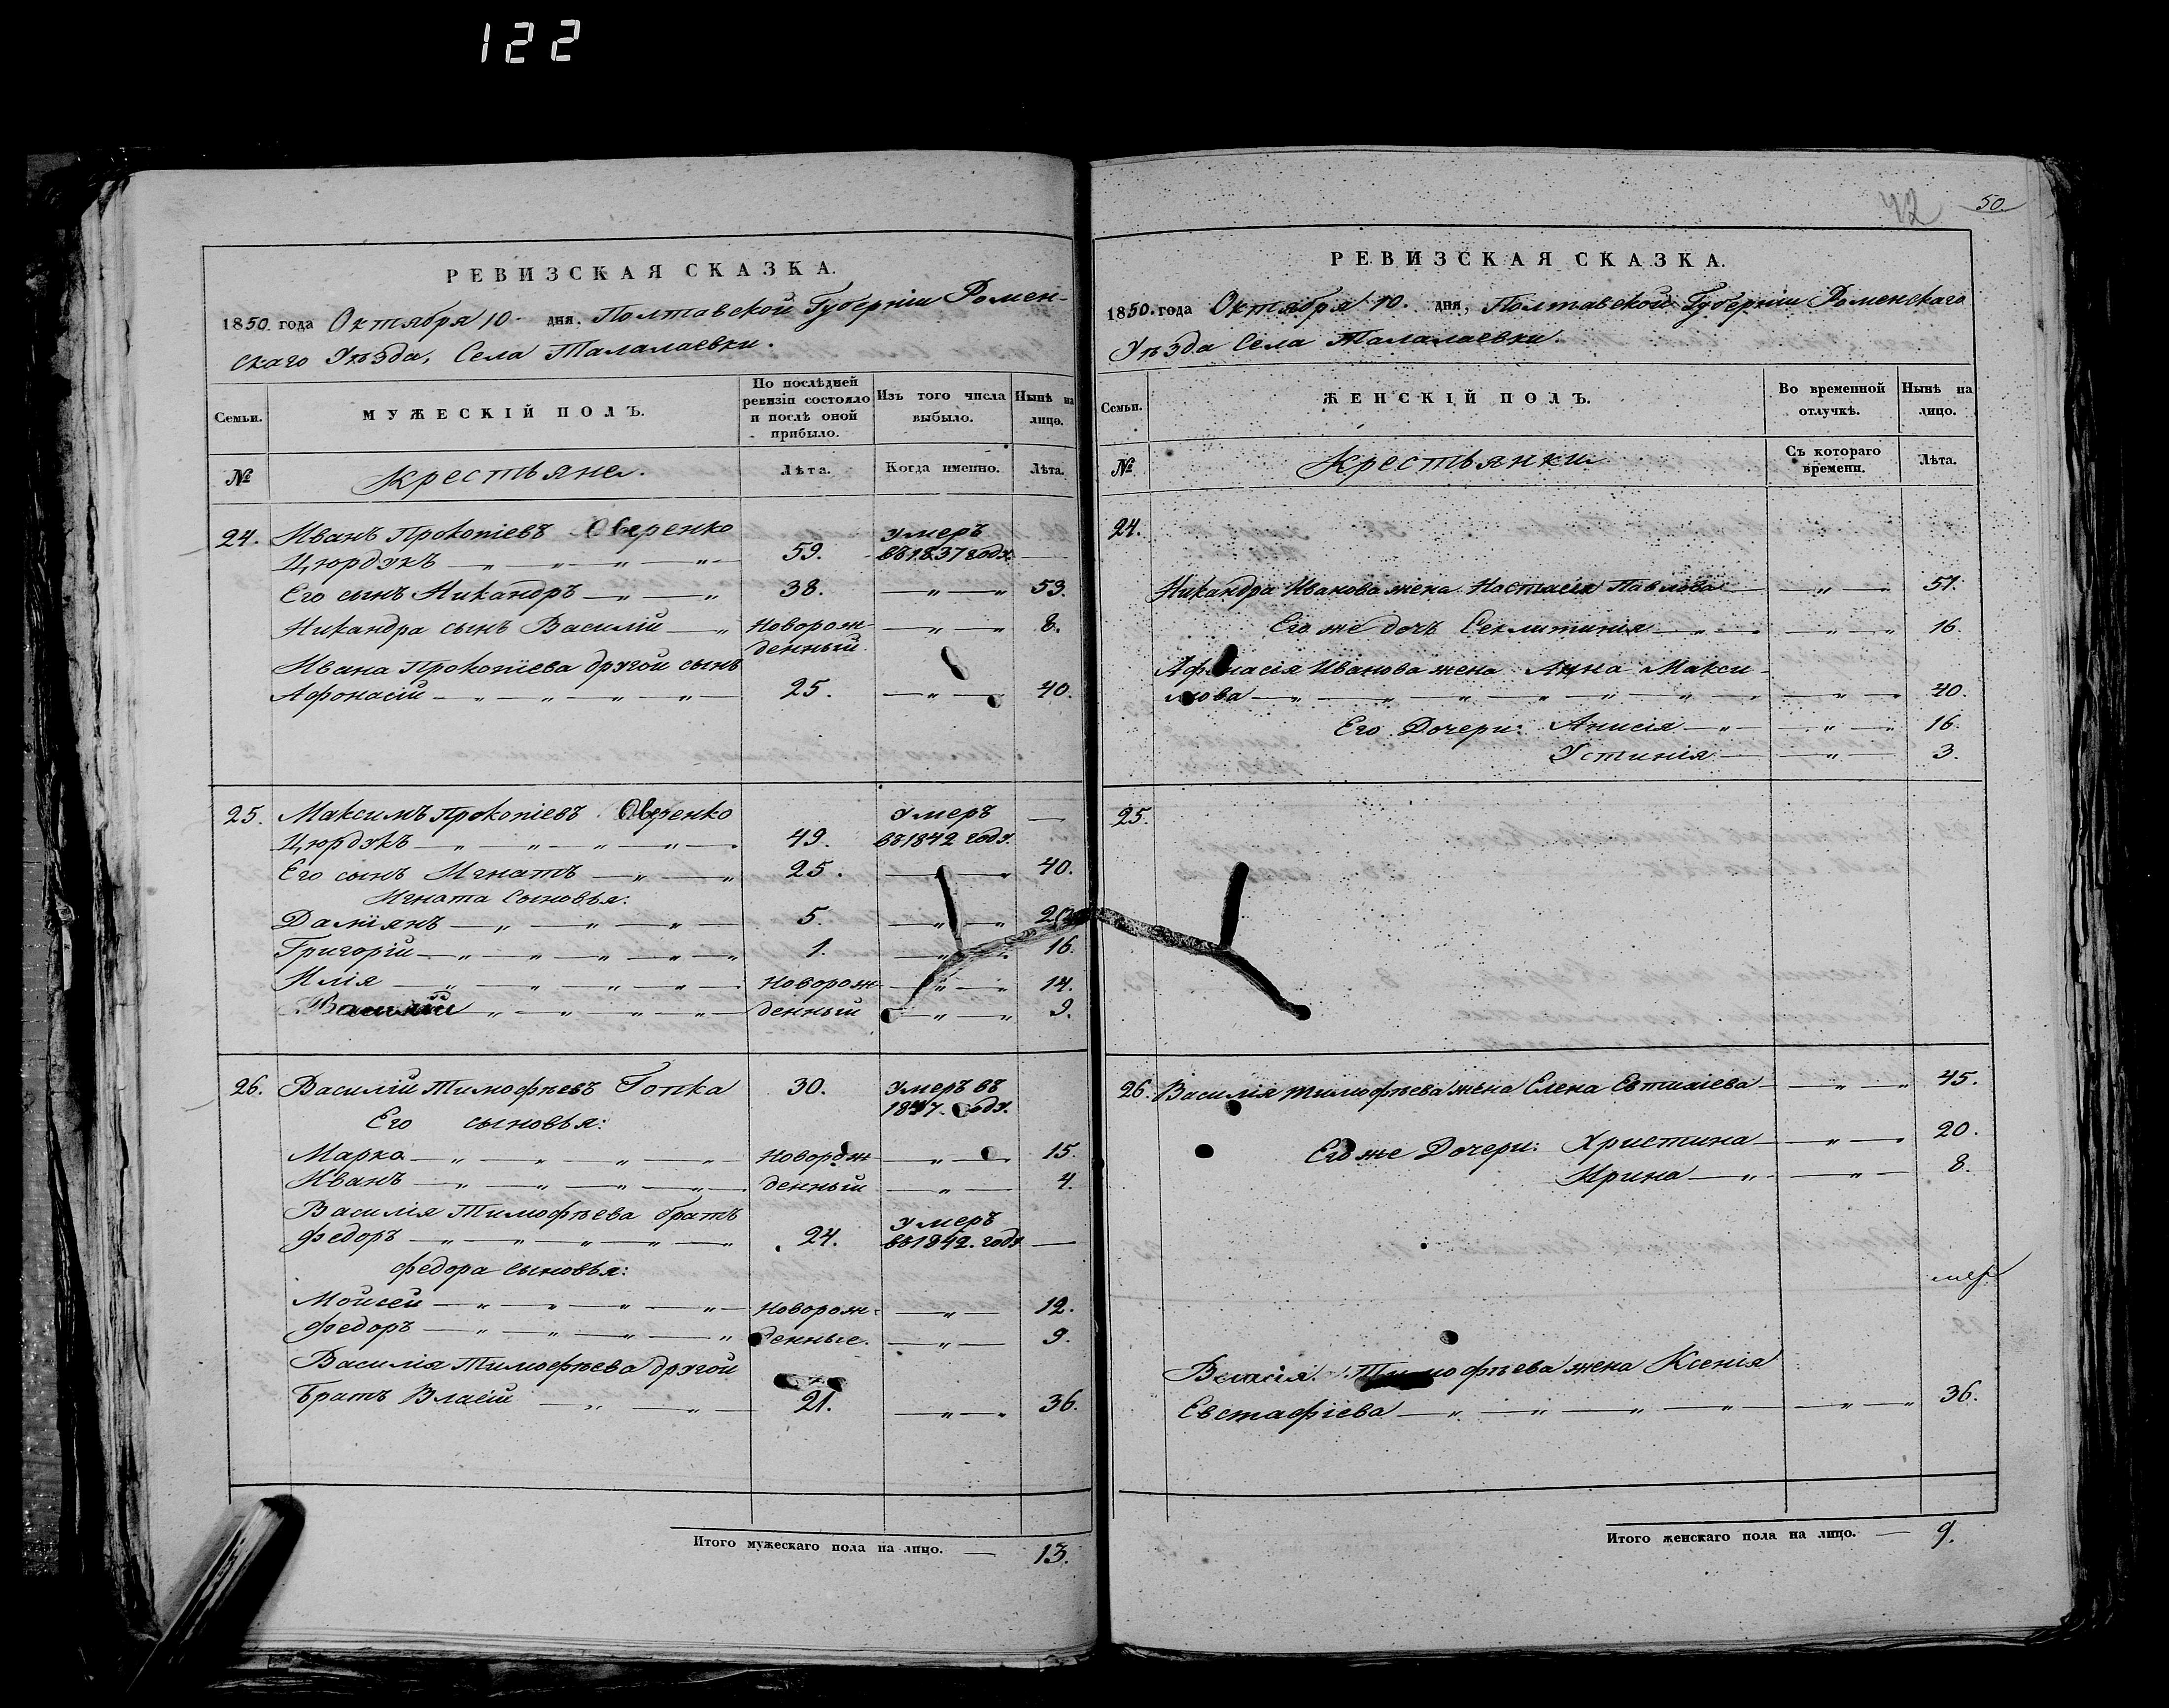 122
РЕВИЗСКАЯ СКАЗКА.
1850. года Октября 10. дня. Полтавской Губерніи Ромен-
скаго Уѣзда, Села Талалаевки.
Семьи.
МУЖЕСКІЙ ПОЛЪ.
По послѣдней ревизіи состояло и послѣ оной прибыло.
Изъ того числа выбыло.
Нынѣ на лицо.
№
Крестьяне.
Лѣта.
Когда именно.
Лѣта.
24. Иванъ Прокопіевъ Оверенко умеръ
Цюрдукъ — „ — „ — „ — 59. въ 1837 году. —
Его сынъ Никандръ — „ — „ 38. — „ — „ 53.
Никандра сынъ Василій — „ Новорож- — „ — „ 8.
денный
Ивана Прокопіева другой сынъ
Афонасій — „ — „ — „ — „ — 25. — „ — 40.
25. Максимъ Прокопіевъ Оверенко умеръ —
Цюрдукъ — „ — „ — „ — „ — 49. въ 1842 году.
Его сынъ Игнатъ — „ — „ 25. — „ 40.
Игната Сыновья:
Даміянъ — „ — „ — „ — 5. — „ — 20
Григорій — „ — „ — „ — „ — „ 1. — „ 16.
Илія — „ — „ — „ — „ — Новорож- — „ — 14.
Василій — „ — „ — „ — „ денный — „ — „ 9.
26. Василій Тимофѣевъ Гопка 30. Умеръ въ
1847. году.
Его сыновья:
Марко — „ — „ — „ — „ Новорож- — „ — 15.
Иванъ — „ — „ — „ — „ денный — „ — 4.
Василія Тимофѣева братъ умеръ
Федоръ — „ — „ — „ — „ — „ 24. въ 1842. году —
Федора сыновья:
Мойсей — „ — „ — „ — „ — Новорож- — „ — 12.
Федоръ — „ — „ — „ — „ денные. — „ — 9.
Василія Тимофѣева другой
братъ Власій — „ — „ — 21. — „ — „ 36.
Итого мужескаго пола на лицо. — 13.
42
50
РЕВИЗСКАЯ СКАЗКА.
1850. года Октября 10. дня, Полтавской Губерніи Роменскаго
Уѣзда Села Талалаевки.
Семьи.
ЖЕНСКІЙ ПОЛЪ.
Во временной отлучкѣ.
Нынѣ на лицо.
№
Крестьянки
Съ котораго времени.
Лѣта.
24.
Никандра Иванова жена Настасія Павлова — — „ — 51.
Его же дочь Секлитинія — „ — „ — „ — „ 16.
Афанасія Иванова жена Анна Макси-
мова — „ — „ — „ — „ — „ — „ — „ — „ — „ 40.
Его Дочери: Анисія — „ — — „ — „ 16.
Устинія — — „ — 3.
25.
26. Василія Тимофѣева жена Елена Евтихіева — — „ — „ 45.
Его же Дочери: Христина — — „ — „ 20.
Ирина — „ — — „ — 8.
Власія Тимофѣева жена Ксенія
Евстафіева — „ — „ — „ — „ — — „ — „ 36.
Итого женскаго пола на лицо. — 9.